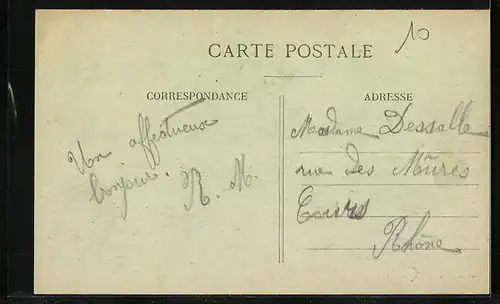 10
CARTE POSTALE
CORRESPONDANCE
Un affectueux
bonjour.
R. M.
ADRESSE
Madame Dessalle
rue des Mûres
Cours
Rhône